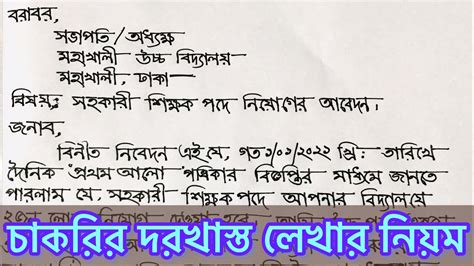 বরাবর,
সভাপতি/অধ্যক্ষ
মহাখালী উচ্চ বিদ্যালয়
মহাখালী, ঢাকা—
বিষয়: সহকারী শিক্ষক পদে নিয়োগের আবেদন।
জনাব,
বিনীত নিবেদন এই যে, গত ১/০১/২০২২ খ্রি: তারিখে
দৈনিক প্রথম আলো পত্রিকার বিজ্ঞপ্তির মাধ্যমে জানতে
পারলাম যে, সহকারী শিক্ষক পদে আপনার বিদ্যালয়ে
চাকরির দরখাস্ত লেখার নিয়ম